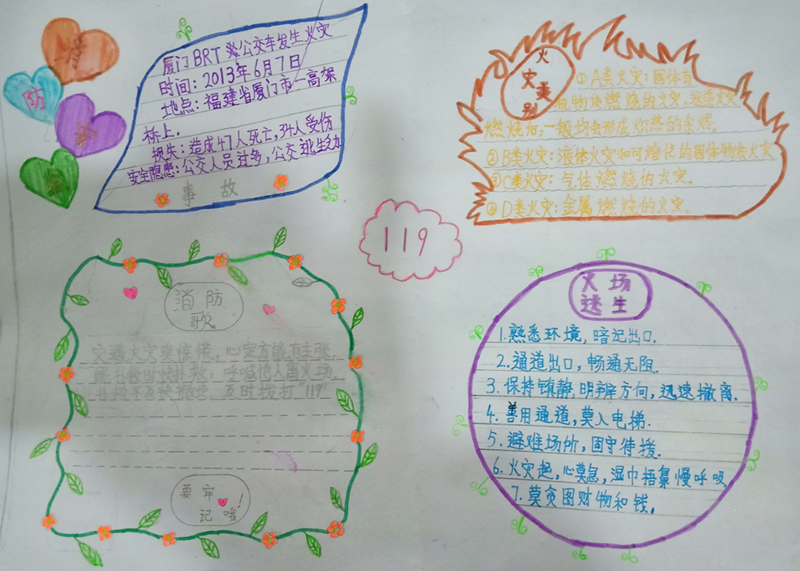 消
防
安
全
厦门BRT公交车发生火灾
时间：2013年6月7日
地点：福建省厦门市一高架
桥上.
损失：造成47人死亡，34人受伤
安全隐患：公交人员过多，公交逃生幼
事故
火
灾类
别
①A类火灾：固体有
机物质燃烧的火灾，
燃烧后，一般均会形成炽热的余烬.
②B类火灾：液体火灾和可熔化的固体物质火灾
③C类火灾：气体燃烧的火灾.
④D类火灾：金属燃烧的火灾.
119
消防
歌
突遇火灾莫惊慌，心定方能有主张.
能扑救时快扑救，呼喊他人离火场.
及时拨打"119"
要牢
记哦！
火场
逃生
1.熟悉环境，暗记出口.
2.通道出口，畅通无阻.
3.保持镇静，明辨方向，迅速撤离.
4.善用通道，莫入电梯.
5.避难场所，固守待援.
6.火灾起，心莫急，湿巾捂鼻慢呼吸
7.莫贪图财物和钱。